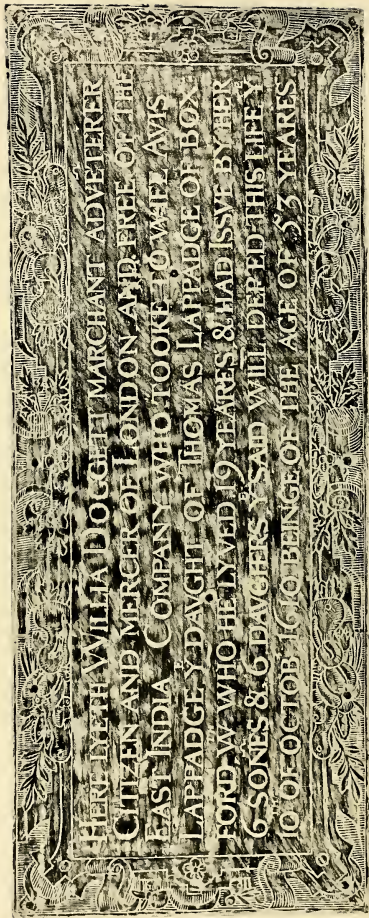 HERE LYETH WILLIĀ DOGGETT MARCHANT ADVĒTERER
CITIZEN AND MERCER OF LONDON AND FREE OF THE
EAST INDIA COMPANY WHO TOOKE TO WIFE AVIS
LAPPADGE Yᴱ DAVGHT OF THOMAS LAPPADGE OF BOX
FORD Wᵀᴴ WHO HE LYVED 19 YEARES & HAD ISSVE BY HER
6 SONES & 6 DAVGHERS Yᴱ SAID WILL DEPTED THIS LIFE Yᴱ
10ᵀᴴ OF OCTOB 1610 BEINGE OF THE AGE OF 53 YEARES